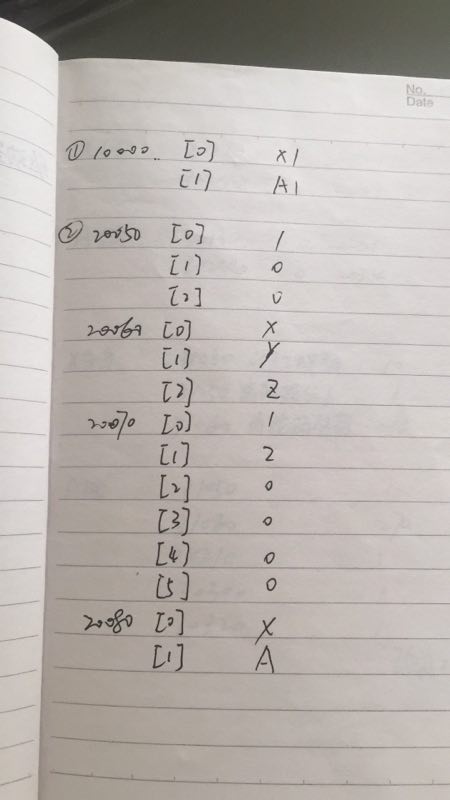 No.
Date
① 10000.. [0] X1
[1] A1
② 20050 [0] 1
[1] 0
[2] 0
20060 [0] X
[1] Y
[2] Z
20070 [0] 1
[1] 2
[2] 0
[3] 0
[4] 0
[5] 0
20080 [0] X
[1] A